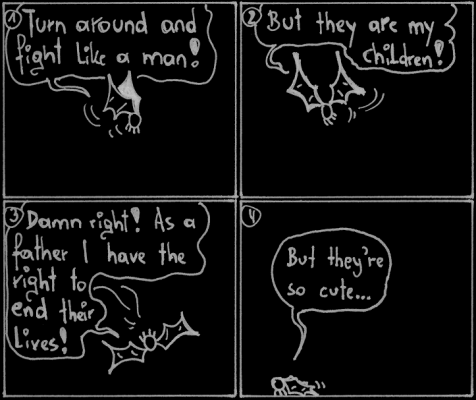 1
Turn around and
fight like a man!
2
But they are my
children!
3
Damn right! As a
father I have the
right to
end their
lives!
4
But they're
so cute...